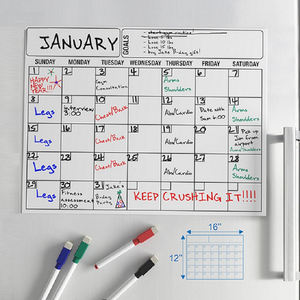 JANUARY
GOALS
SUNDAY MONDAY TUESDAY WEDNESDAY THURSDAY FRIDAY SATURDAY
1 2 3 4 5 6 7
HAPPY
NEW
YEAR!!!
Gym
Consultation
Arms
Shoulders
8 9 10 11 12 13 14
Legs
Interview
3:00
Chest/Back
Abs/Cardio
Date with
Sam 6:00
Arms
Shoulders
15 16 17 18 19 20 21
Legs
Chest/Back
Abs/Cardio
Pick up
Jim from
airport
Arms/Shoulders
22 23 24 25 26 27 28
Legs
Chest/Back
Abs/Cardio
Arms
Shoulders
29 30 31
Legs
Fitness
Assessment
10:00
Jake's
B-day
Party
KEEP CRUSHING IT!!!!
16"
12"